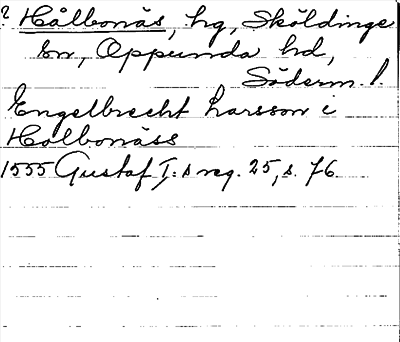 ? Hålbonäs, hg, Sköldinge
sn, Oppunda hd,
Söderm. l.
Engelbrecht Larsson i
Holbonäss
1555 Gustaf I:s reg. 25, s. 76.